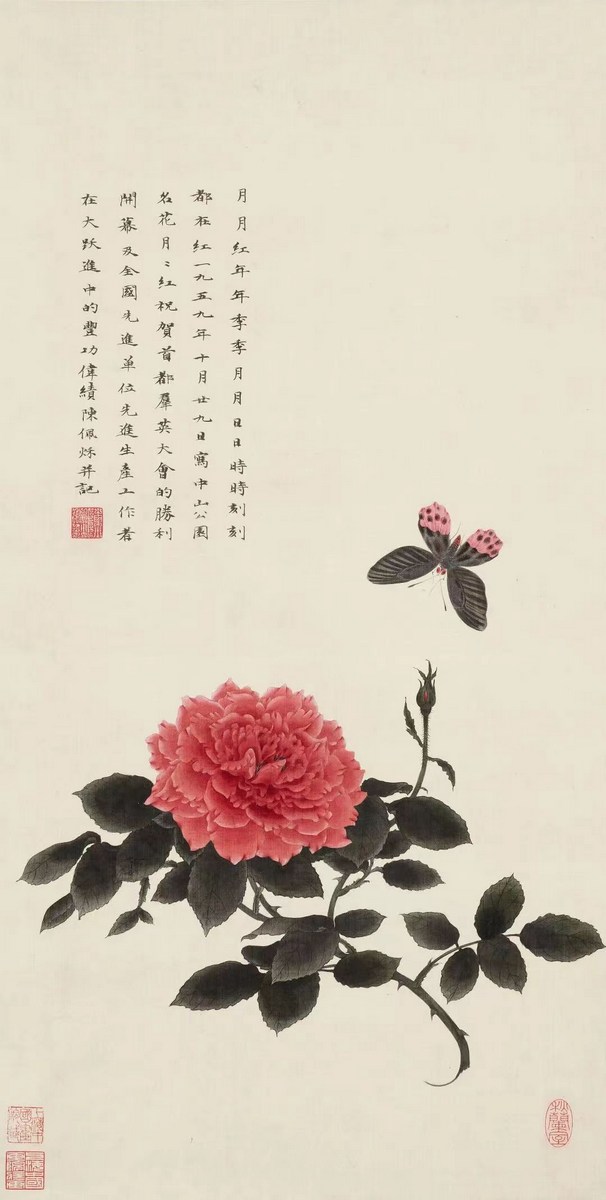 月月红年年季季月月日日時時刻刻
都在红一九五九年十月廿九日寫中山公園
名花月〻红祝賀首都羣英大會的勝利
開幕及全國先進單位先進生產工作者
在大跃進中的豐功偉績陳佩烁并記
秋蘭室